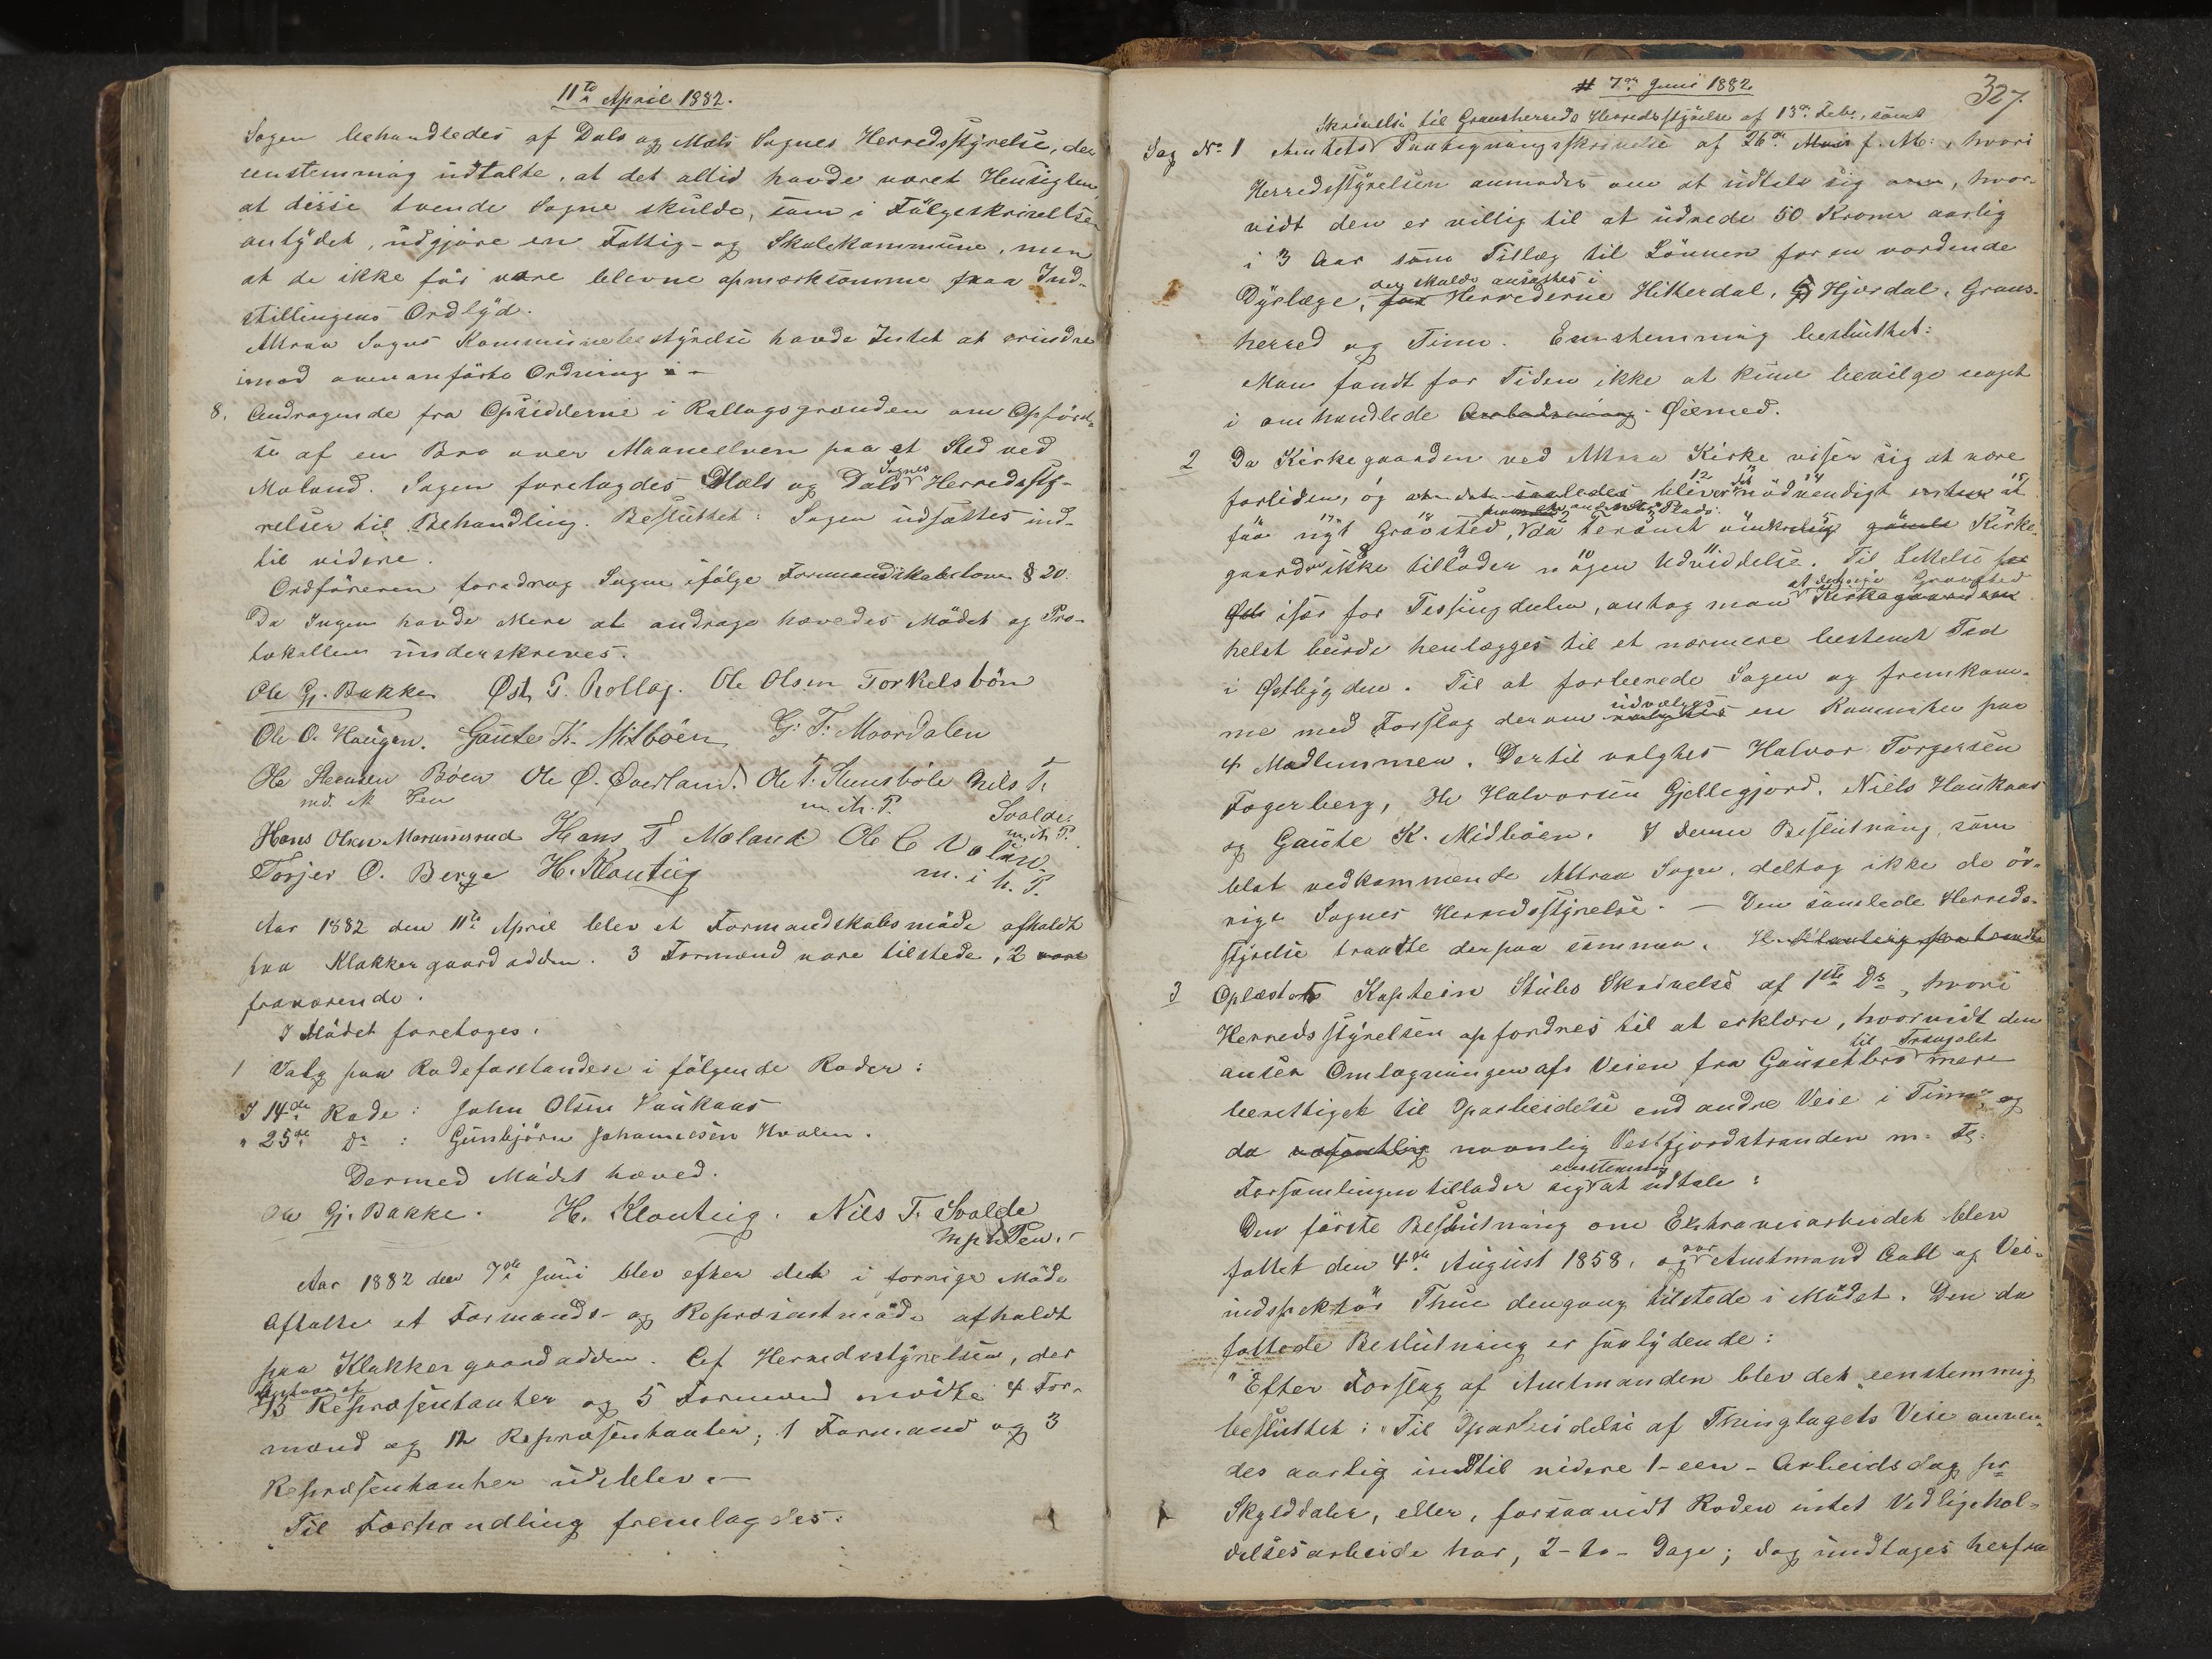 11te April 1882.
Sagen behandledes af Dals og Mæls Sognes Herredsstyrelse, der
eenstemmig udtalte, at det altid havde været Hensigten,
at disse tvende Sogne skulde, som i Følgeskrivelsen
antydet, udgjøre en Fattig- og Skolekommune, men
at de ikke før vare blevne opmærksomme paa Ind-
stillingens Ordlyd.
Attraa Sogns Kommunebestyrelse havde Intet at erindre
imod ovenanførte Ordning. -
8. Andragende fra Opsidderne i Rollagsgrænden om Opførel-
se af en Bro over Maaneelven paa et Sted ved
Moland. Sagen foretagdes Mæls og Dals Sognes Herredssty-
relser til Behandling. Besluttet: Sagen udsættes ind-
til videre.
Ordføreren foredrog Sagne ifølge Formandskabslovens § 20.
Da Ingen havde Mere at andrage hævedes Mødet og Pro-
tokollen underskreves.
Ole Gj. Bakke Øst. T. Rollag. Ole Olsen Torkelsbön
Ole O. Haugen. Gaute K. Mitböen G. T. Moordalen
Ole Steensen Böen Ole Ø. Øverland. Ole T. Steensböle Nils T.
md. it Pen m. ih. P. Svalde
Hans Olsen Marumsrud Hans T Moland Ole C Valen m. ih P.
Torjer O. Berge H. Klonteig m. i h. P.
Aar 1882 den 11te April blev et Formandskabsmøde afholdt
paa Klokkergaard Adden. 3 Formænd vare tilstede, 2 vare
fraværende.
I Mødet foretoges.
1 Valg paa Rodeforstandere i følgende Roder:
I 14de Rode: John Olsen Haukaas
" 25de do : Gunbjørn Johannesen Kvalen.
Dermed Mødet hæved.
Ole Gj. Bakke. H. Klonteig. Nils T. Svalde
m p h Pen. -
Aar 1882 den 7de Juni blev efter det i forrige Møde
Aftalte et Formands- og Repræsentmøde afholdt
paa Klokkergaard Adden. Af Herredsstyrelsen, der
bestaar af
15 Repræsentanter og 5 Formænd mødte 4 For-
mænd og 12 Repræsentanter; 1 Formand og 3
Repræsentanter udeblev. -
Til Forhandling fremlagdes:
7de Juni 1882
327.
Skrivelse til Gransherreds Herredsstyrelse af 13de Febr., samt
Sag No 1 Amtets Paategningsskrivelse af 26de Mai f. M:, hvori
Herredsstyrelsen anmodes om at udtale sig om, hvor-
vidt den er villig til at udrede 50 Kroner aarlig
i 3 Aar som Tillæg til Lønnen for en vordende
der skulde ansættes i
Dyrlæge, for Herrederne Hitterdal, Hjerdal, Grans-
herred og Tinn. Eenstemmig besluttet:
Man fandt for Tiden ikke at kune bevilge noget
i omhandlede Øiemed.
2 Da Kirkegaarden ved Attraa Kirke viser sig at være
forliden, og det saaledes bliver det nødvendigt at
faa nyt Gravsted, da Kirke-
gaarden ikke tillader nogen Udvidelse. Til Lettelse for
især for Tessungdalen, antog man at Gravsted
helst burde henlægges til et nærmere bestemt Sted
i Østbygden. Til at forberede Sagen og fremkom-
udvælges
me med Forslag derom valgtes en Kommite paa
4 Medlemmer. Dertil valgtes Halvor Torgersen
Fagerberg, Ole Halvorsen Gjellegjord, Niels Haukaas
og Gaute K. Midböen. I denne Beslutning, som
blot vedkommende Attraa Sogn, deltog ikke de öv-
rige Sognes Herredsstyrelse. — Den samlede Herreds-
styrelse traadte derpaa sammen. H. Klonteig fratraadte
3 Oplæstes Kaptein Stules Skrivelse af 1ste Ds, hvori
Herredsstyrelsen opfordres til at erklære, hvorvidt den
til Frangslet
anser Omlægningen af Veien fra Gausetbro mere
berettiget til Oparbeidelse end andre Veie i Tinn, og
da navnlig Vestfjordstranden m. Fl.
eenstemmig
Forsamlingen tillader sig at udtale:
Den første Beslutning om Extraveiarbeidet blev
fattet den 4de August 1858, og var Amtmand Aall og Vei-
indspektør Thue dengang tilstede i Mødet. Den da
fattede Beslutning er saalydende:
"Efter Forslag af Amtmanden blev det eenstemmig
besluttet: "Til Oparbeidelse af Thinglagets Veie anven-
des aarlig indtil videre 1-een- Arbeidsdag pr
Skylddaler, eller, forsaavidt Roden intet Vedligehol-
delsesarbeide har, 2-to- Dage; dog undtages herfra